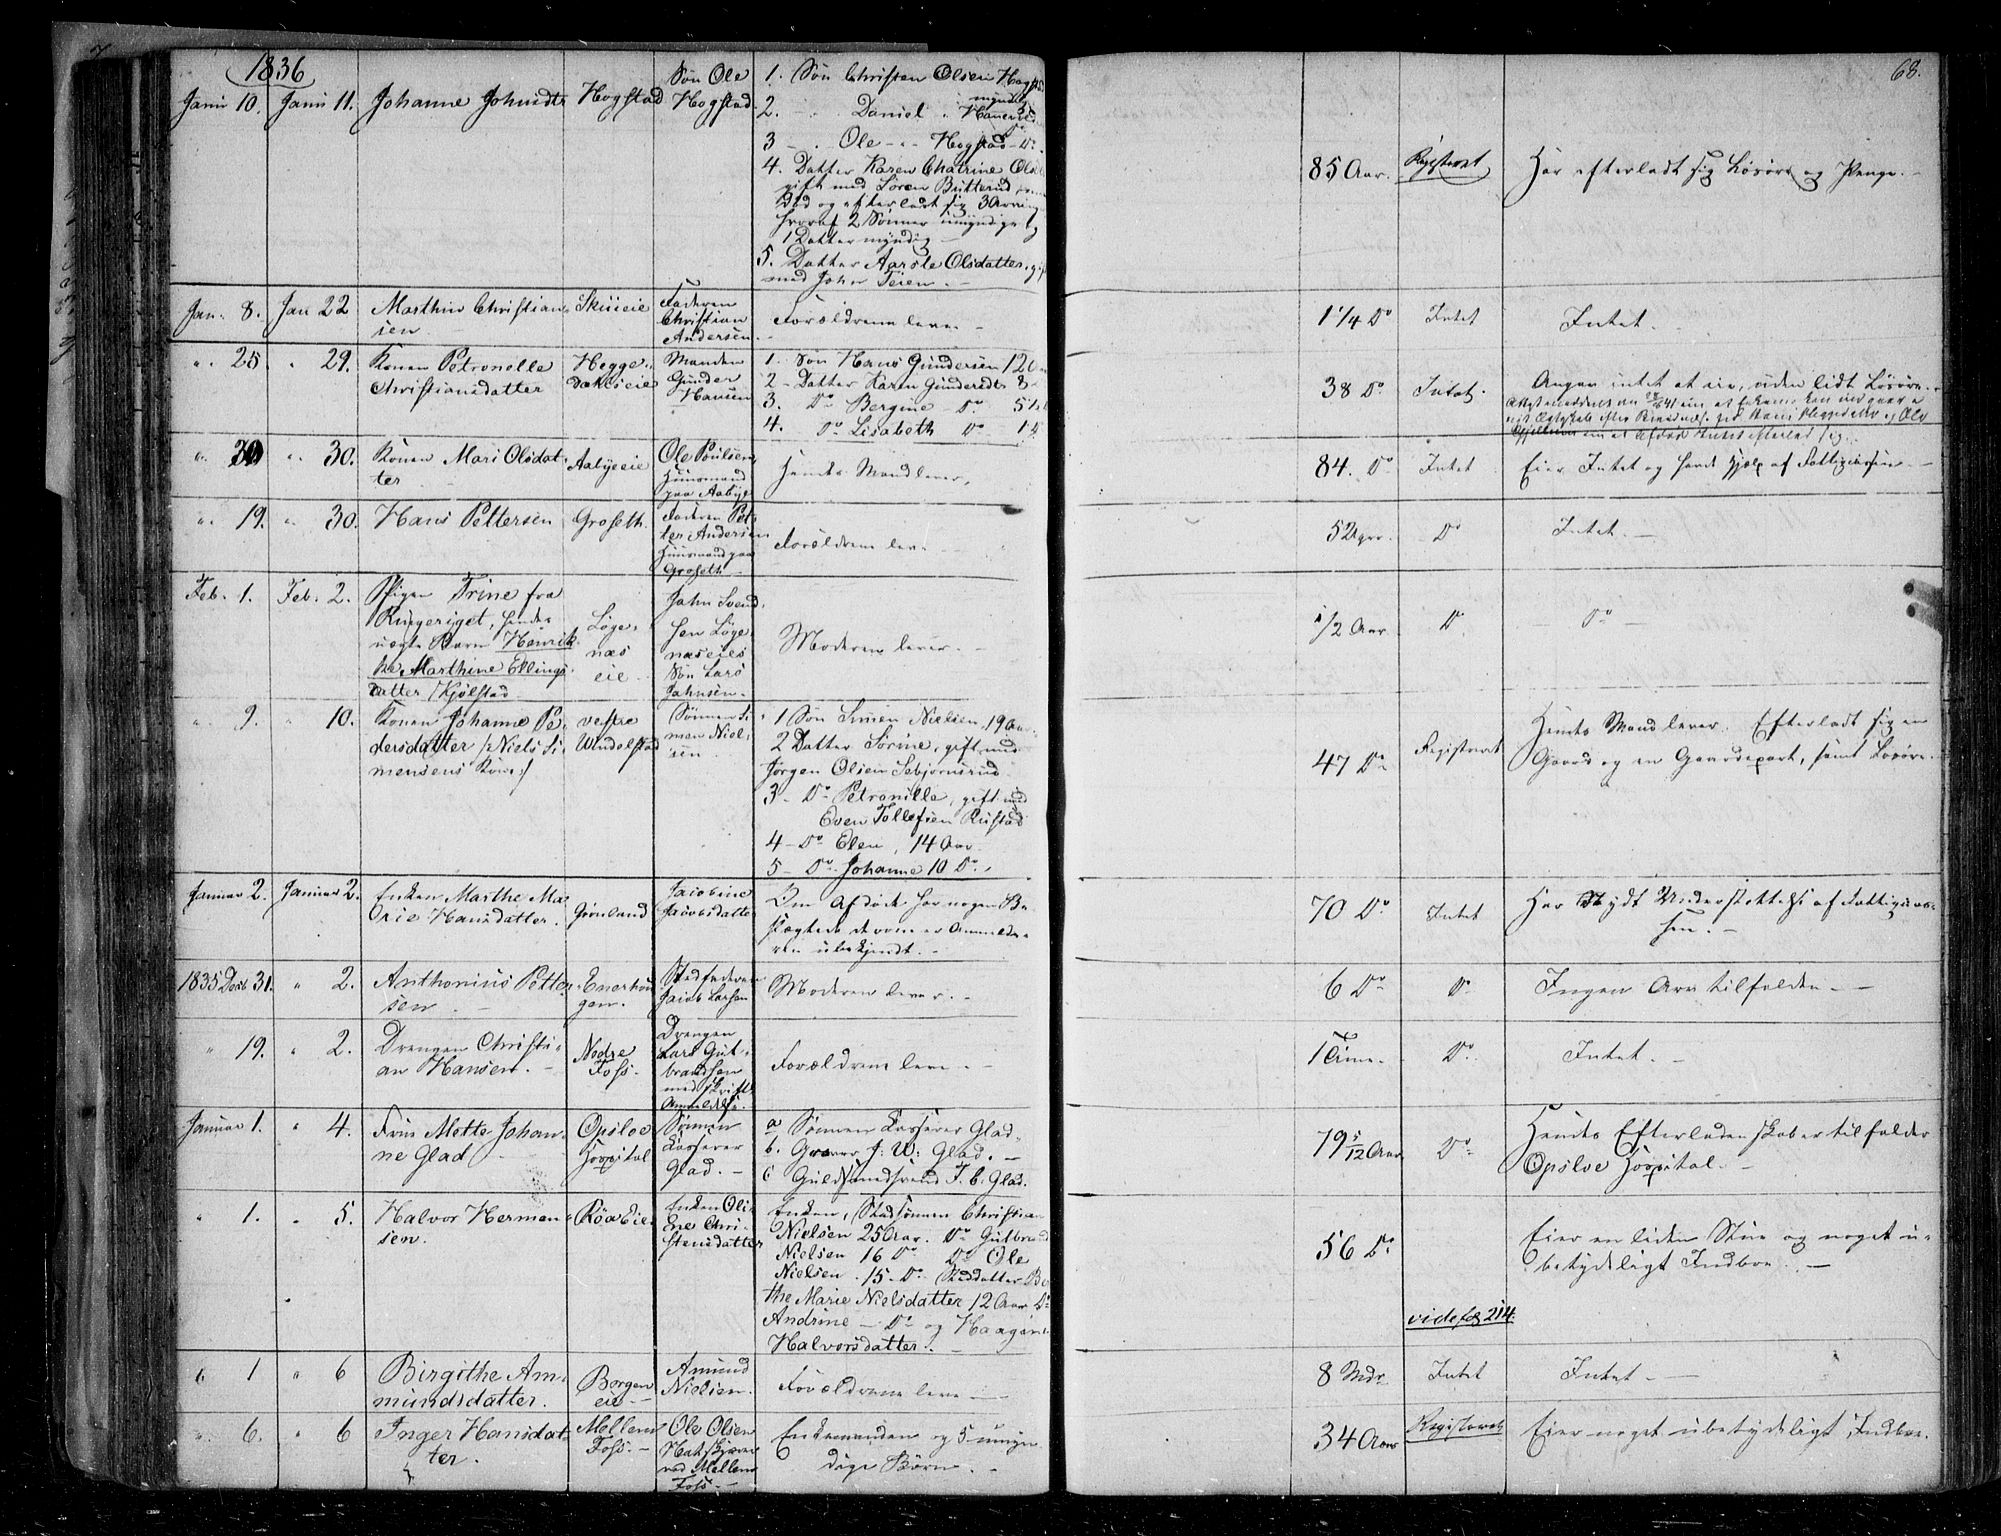 68.
1836
Janu 10. Janu 11. Johanne Johnsdtr Hogstad Søn Ole Hogstad.
1. Søn Christen Olsen Hogstad
myndig
2. - Daniel
3 - Ole - Hogstad - Do
4. Datter Karen Chatrine
gift med Søren Butterud
død og efterladt sig 3
hvoraf 2 Sønner umyndige og
1 Datter myndig -
5. Datter Aarste Olsdatter, gift
med John Teien. -
85 Aar. Registreret Har efterladt sig Løsøre og Penge. -
Jan. 8. Jan 22 Marthin Christian-
sen.
Faderen
Christian
Andersen.
Forældrene leve. -
1 1/4 Do Intet Intet. -
" 25. " 29. Konen Petronelle
Christiansdatter
Hegge-
Manden
Gunder
1. Søn Hans Gundersen 12
2 - Datter Karen Gundersdtr 8
3. Do Bergine - Do
4. Do Lisabeth Do
38 Do Intet. Angav intet at eie, uden lidt Løsøre.
" 30. Konen Mari Olsdat-
ter
Aabyeeie
Ole Poulsen
Huusmand
paa Aabye
Hendes Mand lever,
84. Do Intet Eier Intet og havde Hjelp af Fattigcassen. -
" 19. " 30. Hans Pettersen Groseth.
Faderen Pet-
ter Andersen
Huusmand paa
Groseth
Forældrene leve -
Do Intet. -
Feb. 1. Feb. 2. Pigen Trine fra
Ringeriget, hendes
uægte Barn Henrik-
ke Marthine Ellings-
datter /Kjølstad
Løge-
næs
eie -
John Svend-
sen Løge-
næseies
Søn Lars
Johnsen. -
Moderen lever. -
1/2 Aar Do - Do -
" 9. " 10. Konen Johanne Pe-
dersdatter /: Niels Si-
mensens Kone :/
vestre
Windelstad
Sønnen Si-
men Niel-
sen
1 Søn Simen Nielsen, 19 Aar.
2 Datter Sorine, gift med
Jørgen Olsen Sebjørnsrud
3 - Do Petronille, gift med
Even Tollefsen Rustad
4 - Do Elen, 14 Aar
5 - Do Johanne 10 Do.
47 Do Registreret
Hendes Mand lever. Efterladt sig en
Gaard og en Gaardepart, samt Løsøre.
Januar 2. Januar 2. Enken Marthe Ma-
rie Hansdatter.
Grønland
Jacobine
Jacobsdatter
Om Afdøde har nogen Be-
slægtede derom er Anmelde-
ren ubekjendt. -
70 Do Intet
Har Nydt Understøttelse af Fattigcas-
sen. -
1835 Decb 31. " 2. Anthonius Petter-
sen. -
Enerhou-
gen.
Stedfaderen
Jacob Larsen
Moderen lever. -
6 Do Do Ingen Arv tilfalden - -
" 19. " 2. Drengen Christi-
an Hansen. -
Nedre
Foss. -
Drengen
Lars Gut-
brandsen
med skriftl.
Anmeldelse.
Forældrene leve. -
1 Time. - Do. Intet. -
Januar 1. " 4. Frue Mette Johan-
ne Glad
Opsloe
Hospital
Sønnen
Kasserer
Glad. -
a Sønnen Kasserer Glad. -
b. Graver J: W: Glad. -
c Guldsmedsvend T. C. Glad.
79 5/12 Aar Do
Hendes Efterladenskaber tilfalder
Opsloe Hospital. -
" 1. " 5. Halvor Herman-
sen.
Røa Eie.
Enken Oli-
ene Chri-
stensdatter
Enken, Stedsønnen Christian
Nielsen 25 Aar. Do Gutbrand
Nielsen 16 Do Do Ole
Nielsen 15 - Do. Steddatter
the Marie Nielsdatter 12 Aar Do
Andrine - Do og Haagine
Halvorsdatter. -
56 Do
vide fol 214.
Eier en liden Stue og noget u-
betydeligt Indboe. -
" 1 " 6 Birgithe Am-
mundsdatter.
Borgen
eie -
Amund
Nielsen.
Forældrene leve -
8 Mdr Intet Intet. -
" 6. " 6 Inger Hansdat-
ter.
Mellem
Foss. -
Ole Olsen
ved Mellem
Foss. -
Enkemanden og 5 umyn-
dige Børn. -
34 Aar Registeret Eier noget ubetydeligt Indboe.